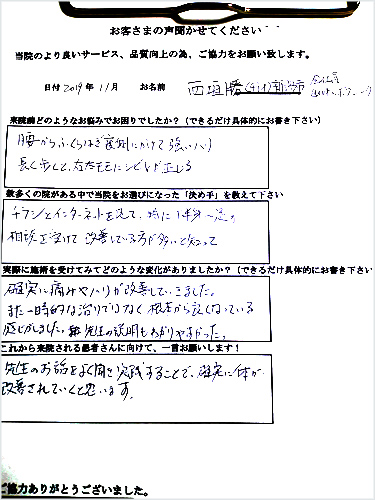 お客さまの声聞かせてください
当院のより良いサービス、品質向上の為、ご協力をお願い致します。
日付 2019年 11月 お名前 西垣勝
来院前どのようなお悩みでお困りでしたか？（できるだけ具体的にお書き下さい）
腰からふくらはぎ裏側にかけて強いハリ
長く歩くと、左右ともにシビレが出る
数多くの院がある中で当院をお選びになった「決め手」を教えて下さい
チラシとインターネットを見て、
相談を受けて改善している方が多いと知って
実際に施術を受けてみてどのような変化がありましたか？（できるだけ具体的にお書き下さい
確実に痛みやハリが改善していきました。
また一時的な治りではなく根本から良くなっている
感じがしました。先生の説明もわかりやすかった。
これから来院される患者さんに向けて、一言お願いします！
先生のお話をよく聞き実践することで、確実に体が
改善されていくと思います。
ご協力ありがとうございました。